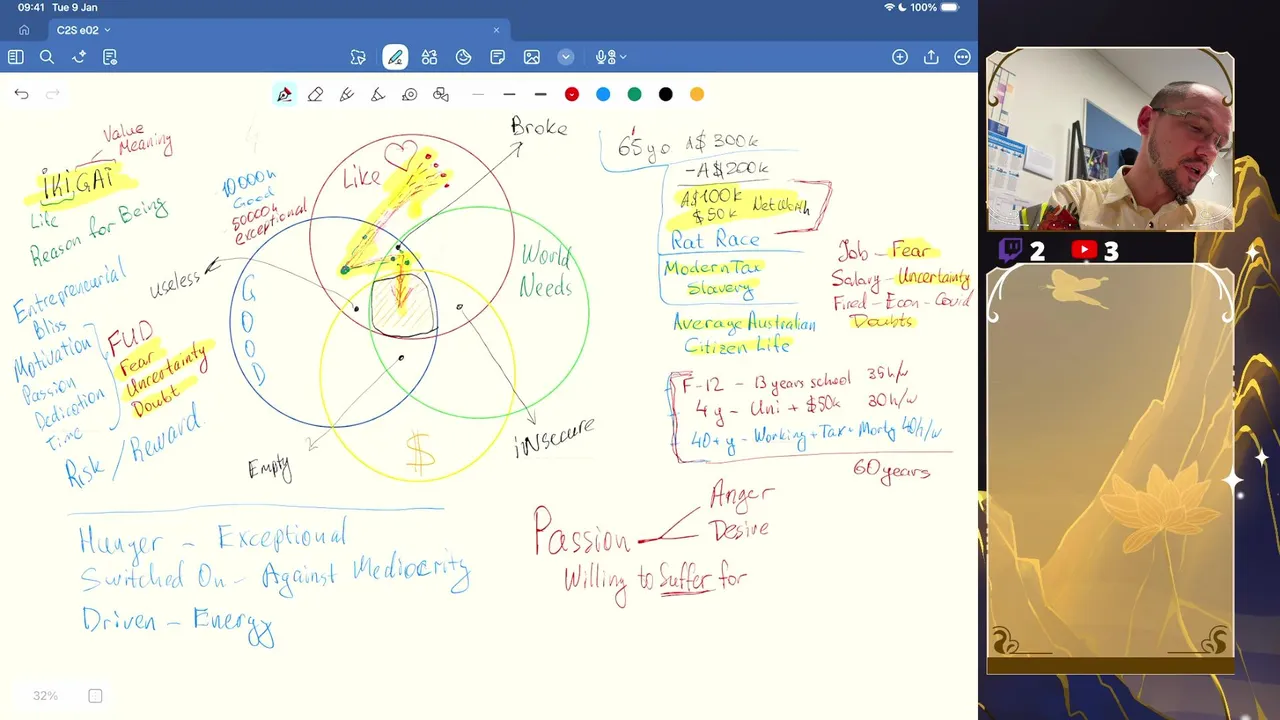 09:41 Tue 9 Jan
100%
C2S e02
Value
Meaning
iKIGAI
Life
Reason for Being
10000h
Good
50000h
exceptional
Entrepreneurial
Bliss
Motivation
Passion
Dedication
Time
FUD
Fear
Uncertainty
Doubt
Risk / Reward
useless
Like
Broke
World
Needs
GOOD
$
Empty
iNsecure
65yo A$300k
-A$200k
A$100k
$50k Net Worth
Rat Race
Modern Tax
Slavery
Average Australian
Citizen Life
Job - Fear
Salary - Uncertainty
Fired - Econ - Covid
Doubts
F-12 - 13 years school 35h/w
4y - Uni + $50k 30h/w
40+y - Working + Tax + Mortg 40h/w
60 years
Hunger - Exceptional
Switched On - Against Mediocrity
Driven - Energy
Passion
Anger
Desire
Willing to Suffer for
32%
2
3